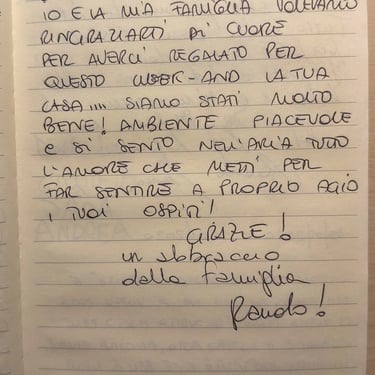 IO E LA MIA FAMIGLIA VOLEVAMO
RINGRAZIARTI DI CUORE
PER AVERCI REGALATO PER
QUESTO WEEK-AND LA TUA
CASA.... SIAMO STATI MOLTO
BENE! AMBIENTE PIACEVOLE
E SI SENTO NELL'ARIA TUTTO
L'AMORE CHE METTI PER
FAR SENTIRE A PROPRIO AGIO
I TUOI OSPITI!
GRAZIE!
un abbraccio
dalla famiglia